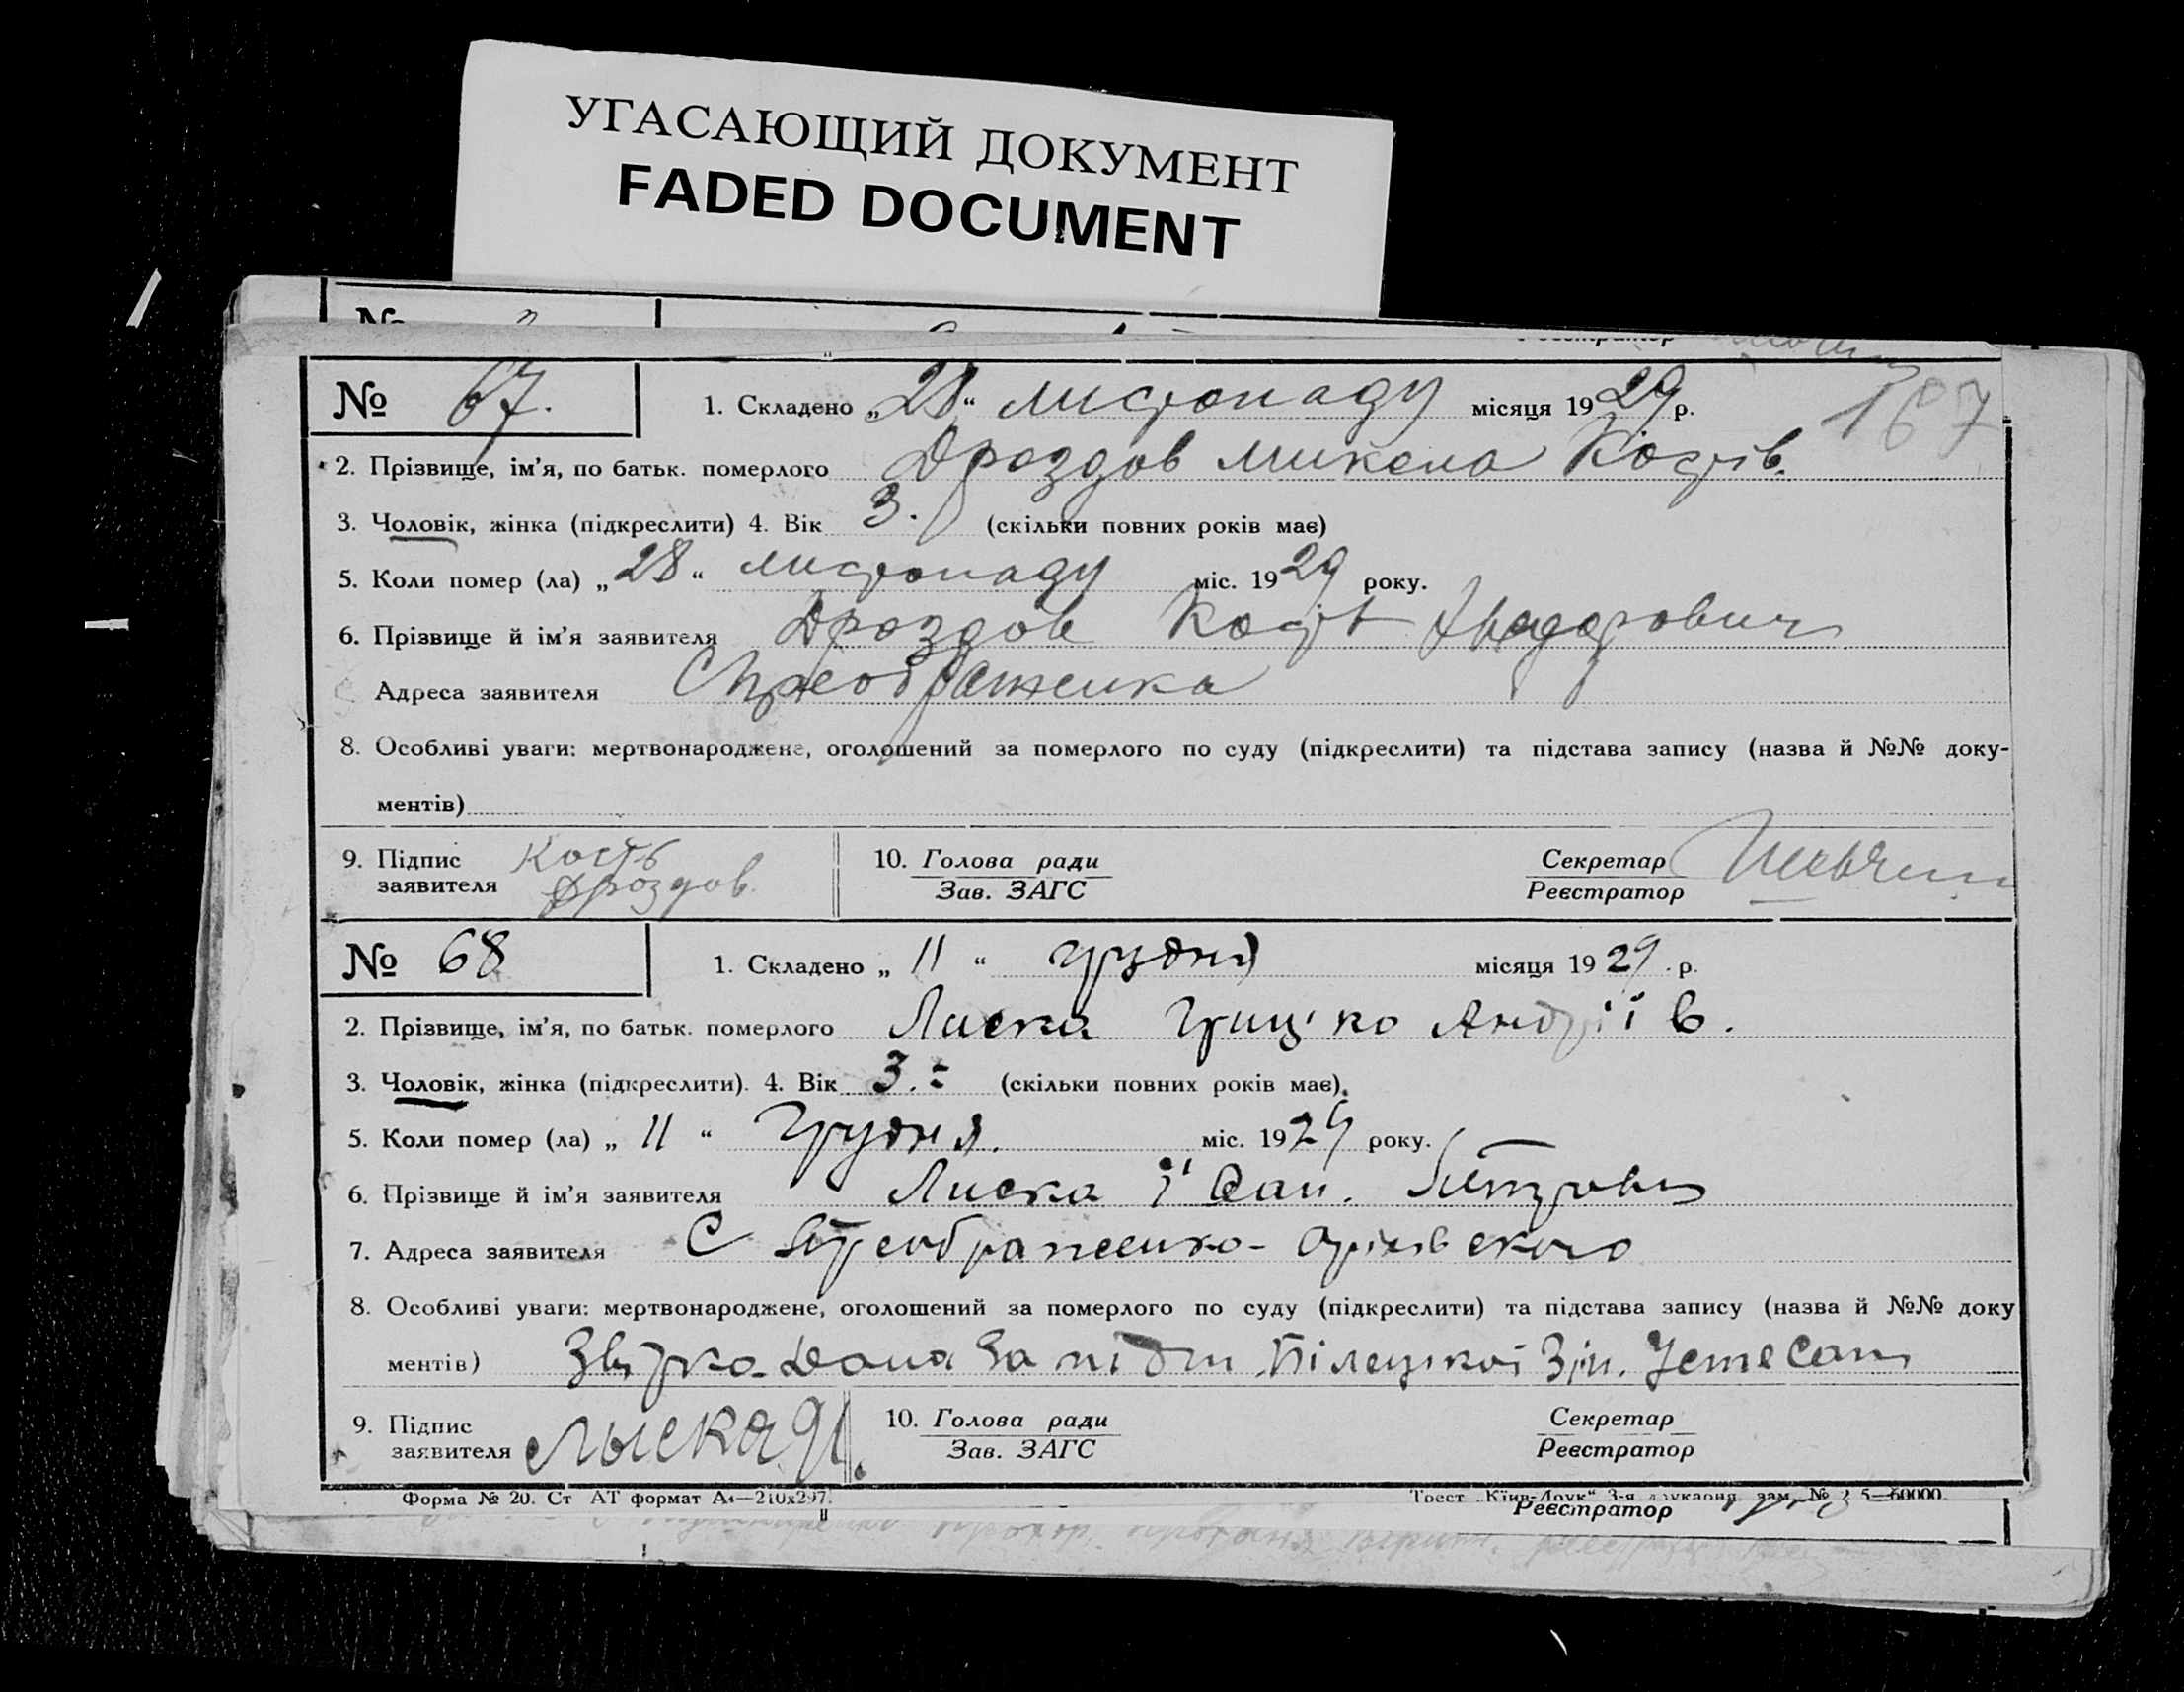 УГАСАЮЩИЙ ДОКУМЕНТ
FADED DOCUMENT
№
№ 67. 1. Складено „28“ листопаду місяця 1929 р. 167
2. Прізвище, ім'я, по батьк. померлого Дроздов Микола Костів.
3. Чоловік, жінка (підкреслити) 4. Вік 3. (скільки повних років має)
5. Коли помер (ла) „28“ листопаду міс. 1929 року.
6. Прізвище й ім'я заявителя Дроздов Кость
Адреса заявителя С Преображенка
8. Особливі уваги: мертвонароджене, оголошений за померлого по суду (підкреслити) та підстава запису (назва й №№ доку-
ментів)
9. Підпис заявителя Кость Дроздов. 10. Голова ради Секретар
Зав. ЗАГС Реєстратор
№ 68 1. Складено „11“ грудня місяця 1929 р.
2. Прізвище, ім'я, по батьк. померлого Лиска Гриц'ко Андріїв.
3. Чоловік, жінка (підкреслити). 4. Вік 3. (скільки повних років має).
5. Коли помер (ла) „11“ Грудня. міс. 1929 року.
6. Прізвище й ім'я заявителя Лиска Петрович
7. Адреса заявителя С Преображенко-
8. Особливі уваги: мертвонароджене, оголошений за померлого по суду (підкреслити) та підстава запису (назва й №№ доку
ментів) за Білецкої
9. Підпис заявителя Лыска 10. Голова ради Секретар
Зав. ЗАГС Реєстратор
Форма № 20. Ст АТ формат А4—210x297. Трест „Київ-Друк“ 3-я друкарня, зам. № 5—60000.
Реєстратор